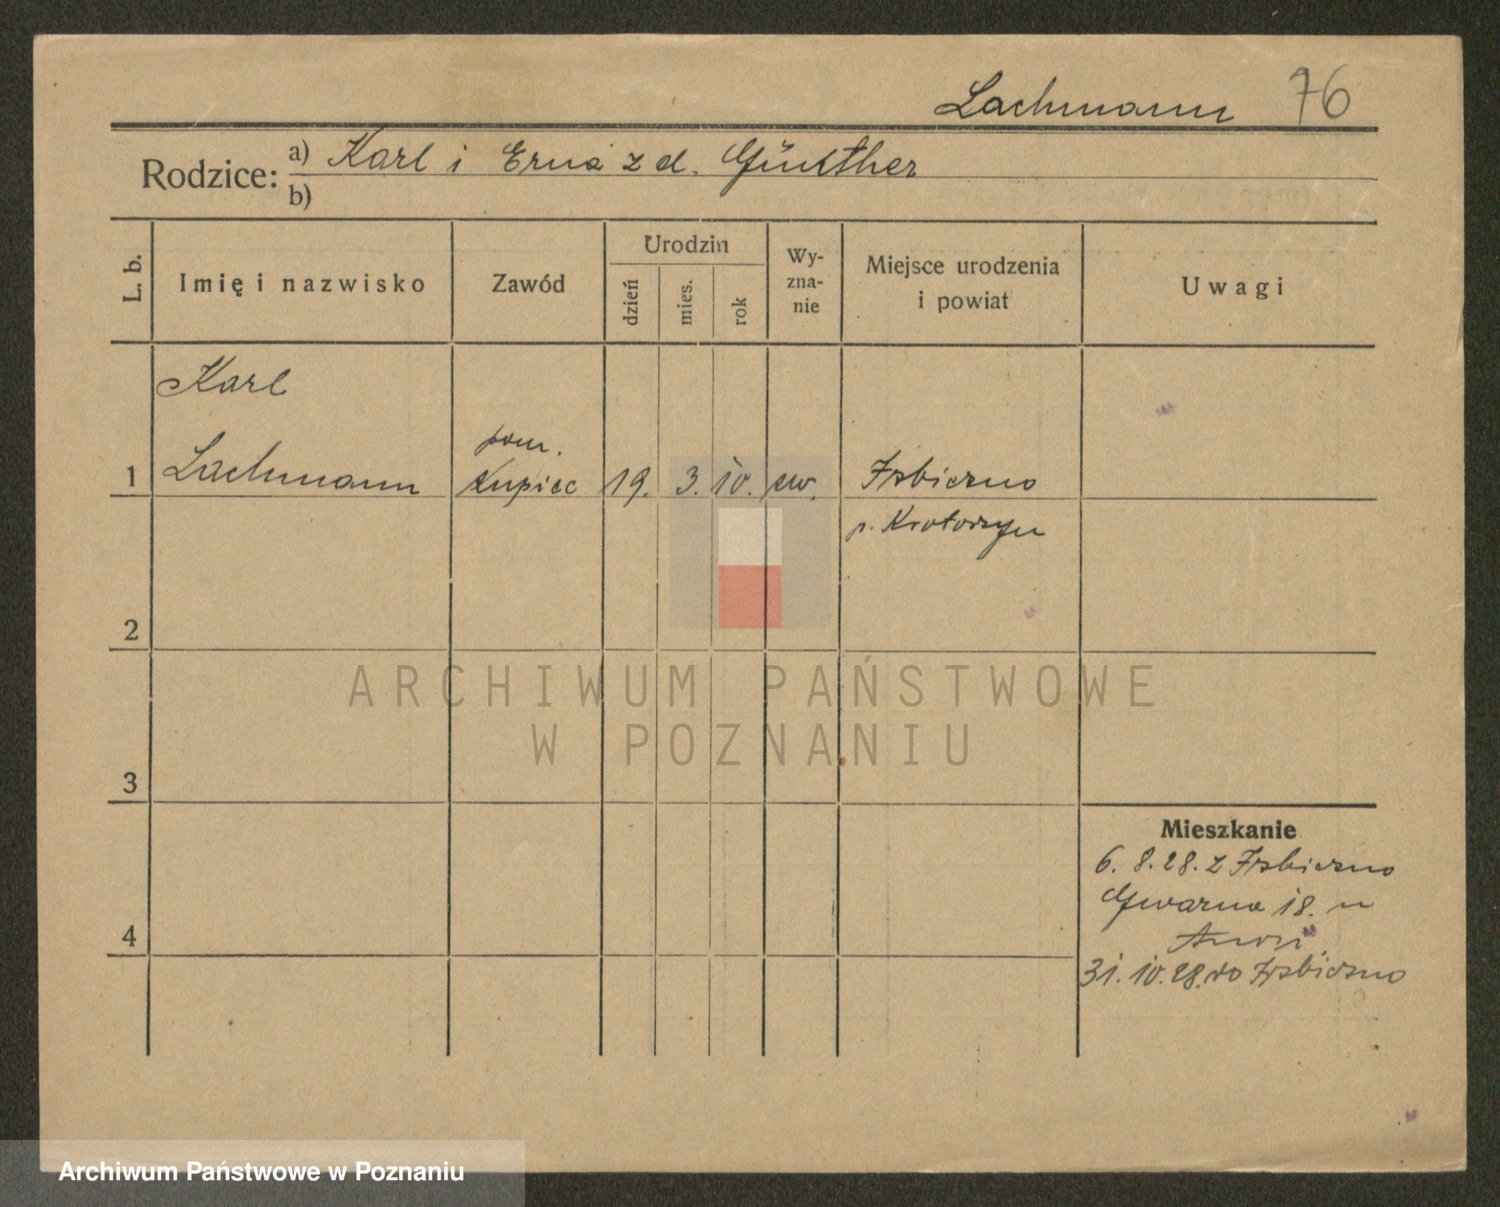 Lachmann 76
Rodzice: a) Karl i Erna z d. Günther
b)
L. b. Imię i nazwisko Zawód Urodzin dzień mies. rok Wy-zna-nie Miejsce urodzenia i powiat Uwagi
Karl
pom.
1 Lachmann Kupiec 19. 3. 10. ew. Izbiczno
p. Krotoszyn
2
ARCHIWUM PAŃSTWOWE
W POZNANIU
3
Mieszkanie
6. 8. 28. z Izbiczno
Gwarna 18. u
4
31. 10. 28. do Izbiczno
Archiwum Państwowe w Poznaniu